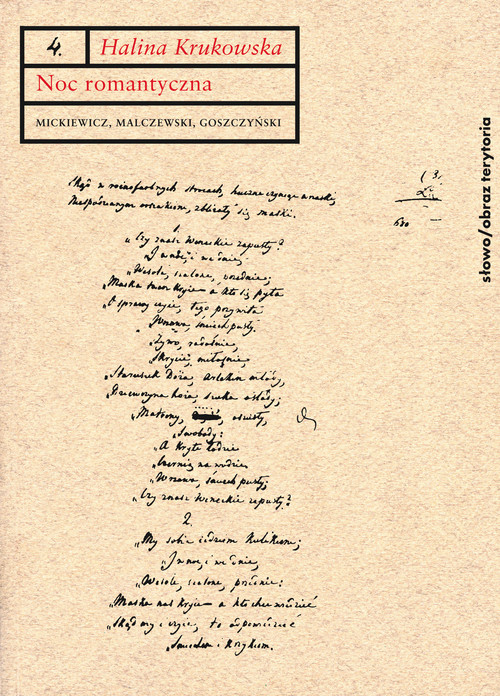 4.
Halina Krukowska
Noc romantyczna
MICKIEWICZ, MALCZEWSKI, GOSZCZYŃSKI
słowo/obraz terytoria
w różnofarbnych strojach, huczne czyniąc wrzaski,
Niespodzianym orszakiem, zbliżały się maski.
1.
„Czy znasz Weneckie zapusty?
„I w nocy i we dnie,
„Wesołe, szalone, przednie;
„Maska twarz kryje — a kto się pyta
„O sprawy życie, tego przywita
„Wrzawa, śmiech pusty.
„Żywo, radośnie,
„Skrycie, miłośnie,
„Staruszek Doża, Arlekin młody,
„Dziewczyna hoża, szuka osłody;
„Matrony,
„Swobody:
„A kryte łodzie
„Czernią na wodzie
„Wrzawa, śmiech pusty;
„Czy znasz Weneckie zapusty?
2.
„My sobie jedziem Kulikiem;
„I w nocy i we dnie,
„Wesołe, szalone, przednie:
„Maska nas kryje — a kto chce wiedzieć
„Skąd my i życie, to odpowiedzieć
„Śmiechem i krzykiem.